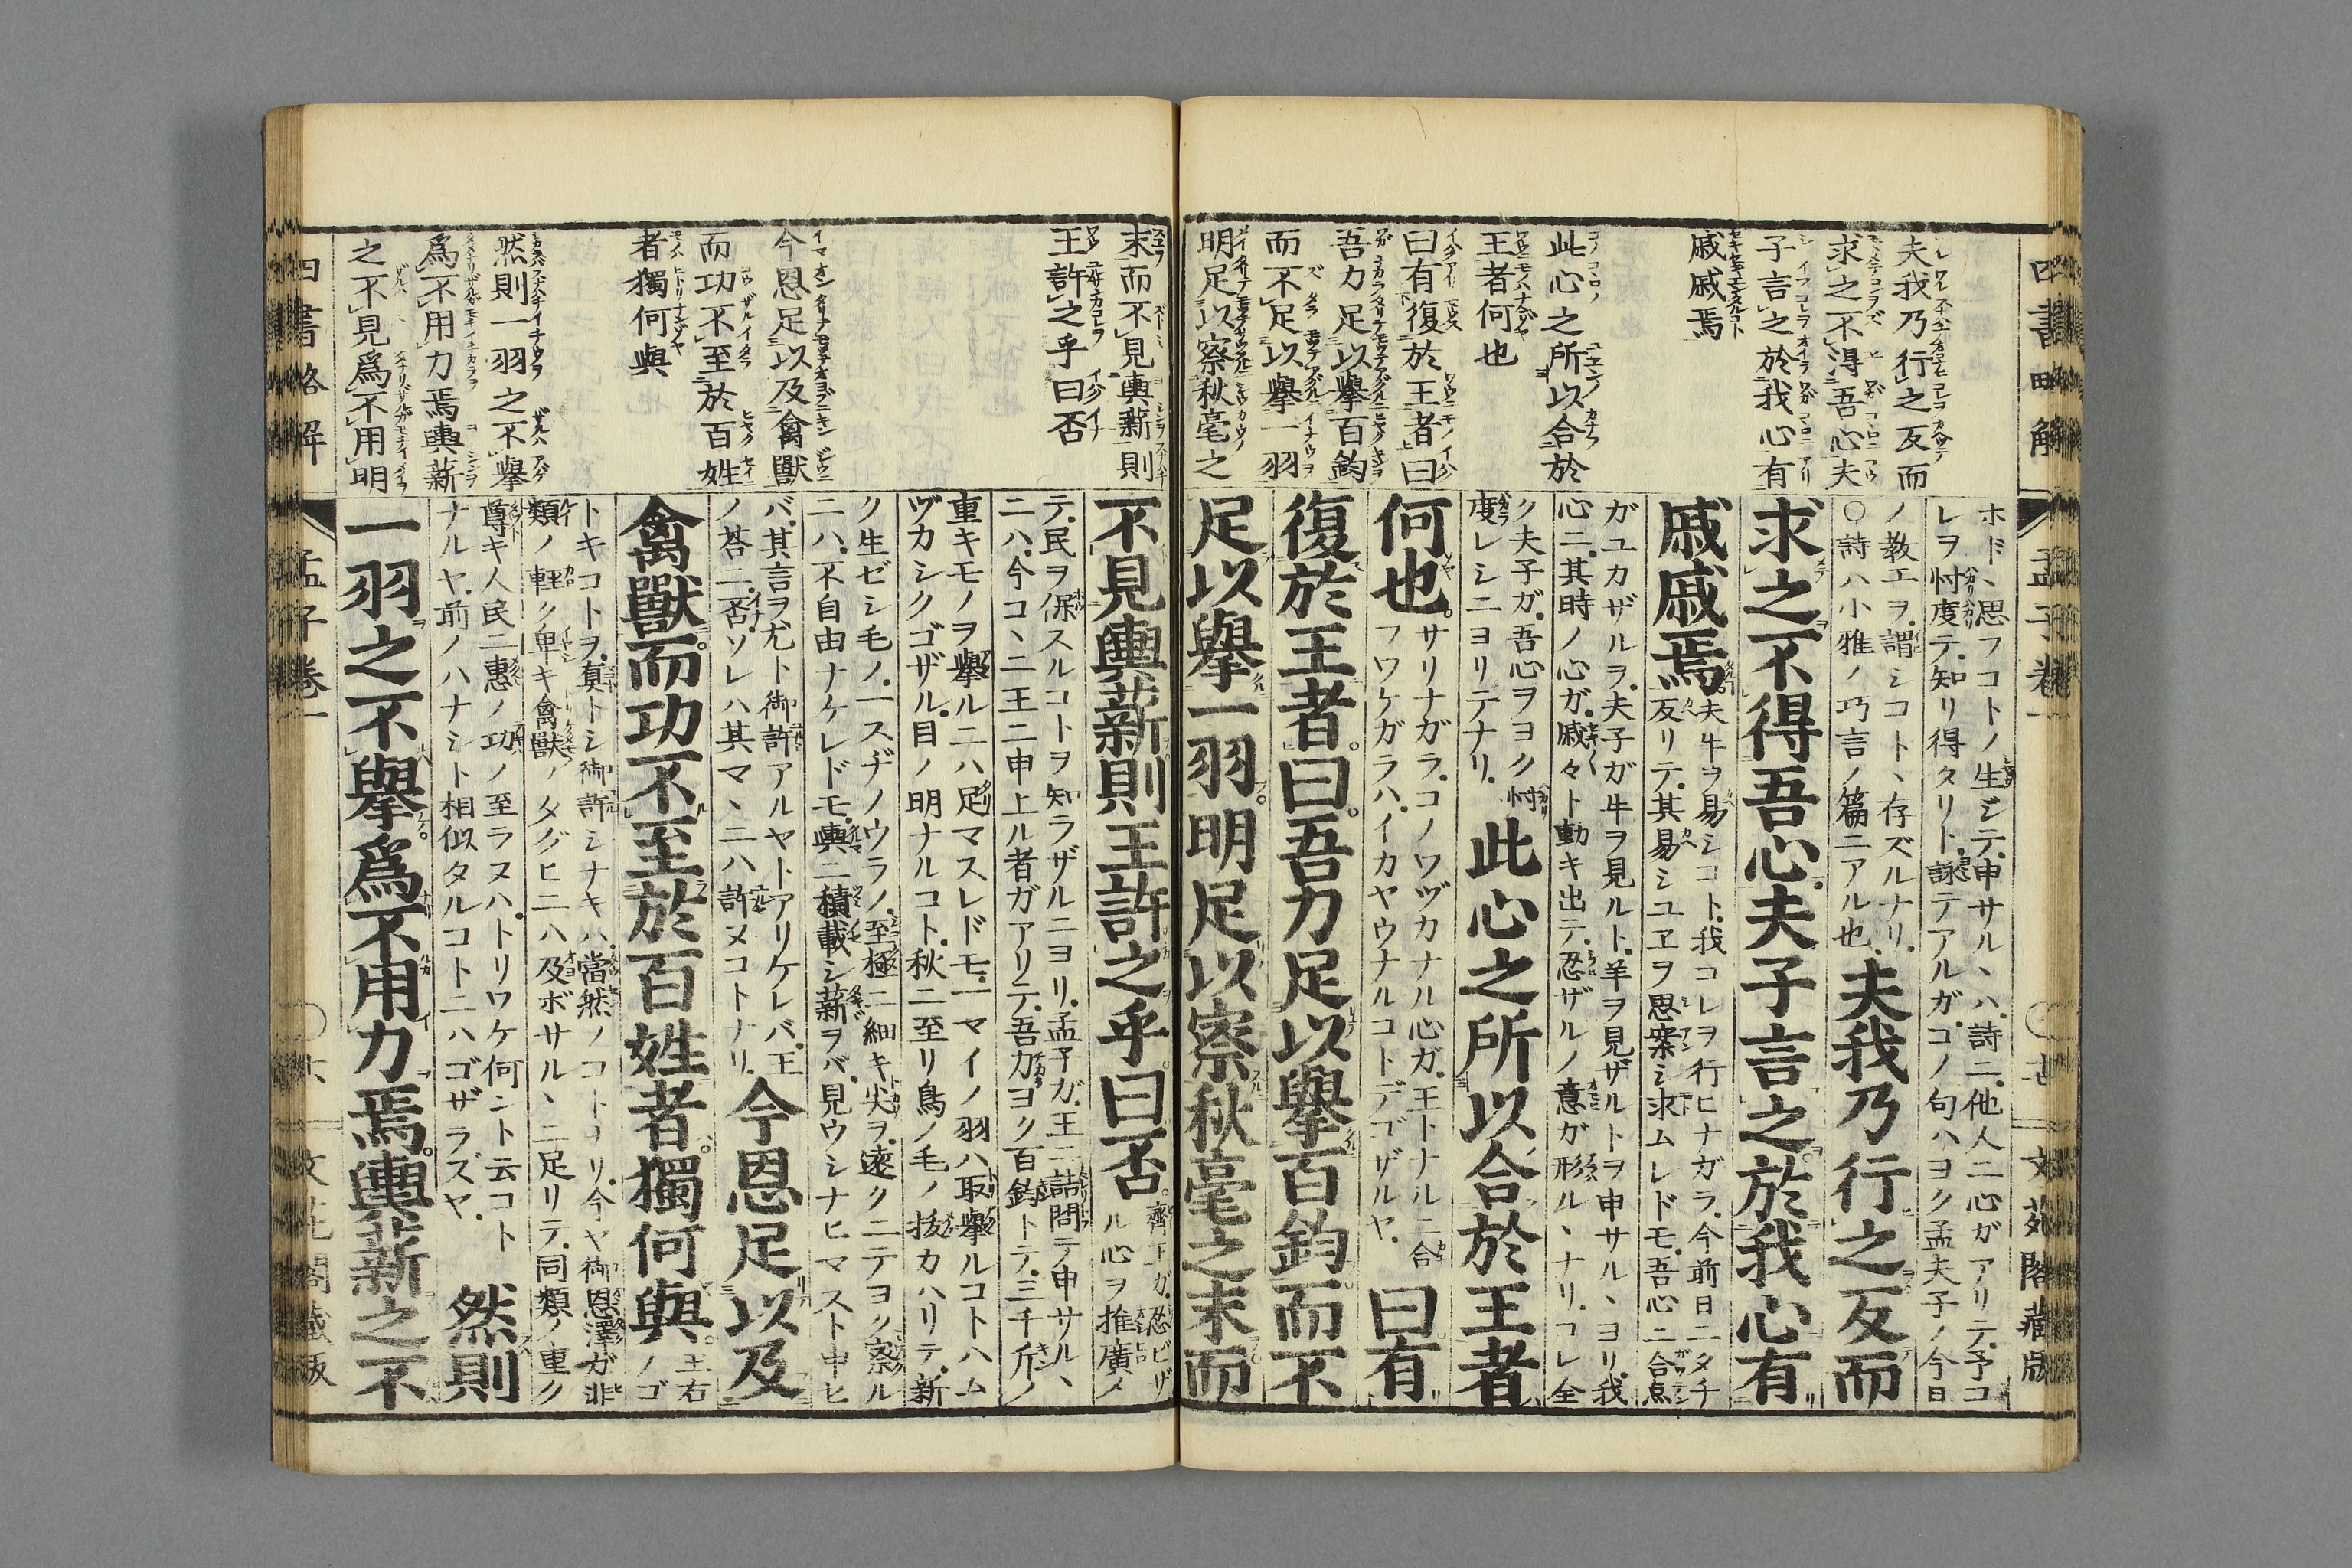 四書略解
孟子卷一
文苑閣藏版
夫我乃行之反而
求之不得吾心夫
子言之於我心有
戚戚焉
此心之所以合於
王者何也
曰有復於王者曰
吾力足以擧百鈞
而不足以擧一羽
明足以察秋毫之
ホド、思フコトノ生ジテ申サル、ハ詩ニ他人ニ心ガアリテ予コ
レヲ忖度テ知リ得タリト詠テアルガコノ句ハヨク孟夫子ノ今日
ノ教エヲ謂シコト、存ズルナリ
○詩ハ小雅ノ巧言ノ篇ニアル也
夫我乃行之反而
求之不得吾心夫子言之於我心有
戚戚焉
夫牛ヲ易シコト我コレヲ行ヒナガラ今前日ニタチ
反リテ其易シユヱヲ思案シ求ムレドモ吾心ニ合点
ガユカザルヲ夫子ガ牛ヲ見ルト羊ヲ見ザルトヲ申サル、ヨリ我
心ニ其時ノ心ガ戚々ト動キ出テ忍ザルノ意ガ形ル、ナリコレ全
ク夫子ガ吾心ヲヨク忖
度レシニヨリテナリ
此心之所以合於王者
何也
サリナガラコノワヅカナル心ガ王トナルニ合
フワケガラハイカヤウナルコトデゴザルヤ
曰有
復於王者曰吾力足以擧百鈞而不
足以擧一羽明足以察秋毫之末而
末而不見輿薪則
王許之乎曰否
今恩足以及禽獸
而功不至於百姓
者獨何與
然則一羽之不擧
爲不用力焉輿薪
之不見爲不用明
不見輿薪則王許之乎曰否
齊王ガ忍ビザ
ル心ヲ推廣メ
テ民ヲ保スルコトヲ知ラザルニヨリ孟子ガ王ニ詰問テ申サル、
ニハ今コ、ニ王ニ申上ル者ガアリテ吾力ヨク百鈞トテ三千斤ノ
重キモノヲ擧ルニハ足マスレドモ一マイノ羽ハ取擧ルコトハム
ヅカシクゴザル目ノ明ナルコト秋ニ至リ鳥ノ毛ノ拔カハリテ新
ク生ゼシ毛ノ一スヂノウラノ至極ニ細キ尖ヲ遠クニテヨク察ル
ニハ不自由ナケレドモ輿ニ積載シ薪ヲバ見ウシナヒマスト申ヒ
バ其言ヲ尤ト御許アルヤトアリケレバ王
ノ荅ニ否ソレハ其マ、ニハ許ヌコトナリ
今恩足以及
禽獸而功不至於百姓者獨何與
王右
ノゴ
トキコトヲ真トシ御許シナキハ當然ノコトヨリ今ヤ御恩澤ガ非
類ノ軽ク卑キ禽獸ノタグヒニハ及ボサル、ニ足リテ同類ノ重ク
尊キ人民ニ惠ノ功ノ至ラヌハトリワケ何ント云コト
ナルヤ前ノハナシト相似タルコトニハゴザラズヤ
然則
一羽之不擧爲不用力焉輿薪之不
四書略解
孟子卷一